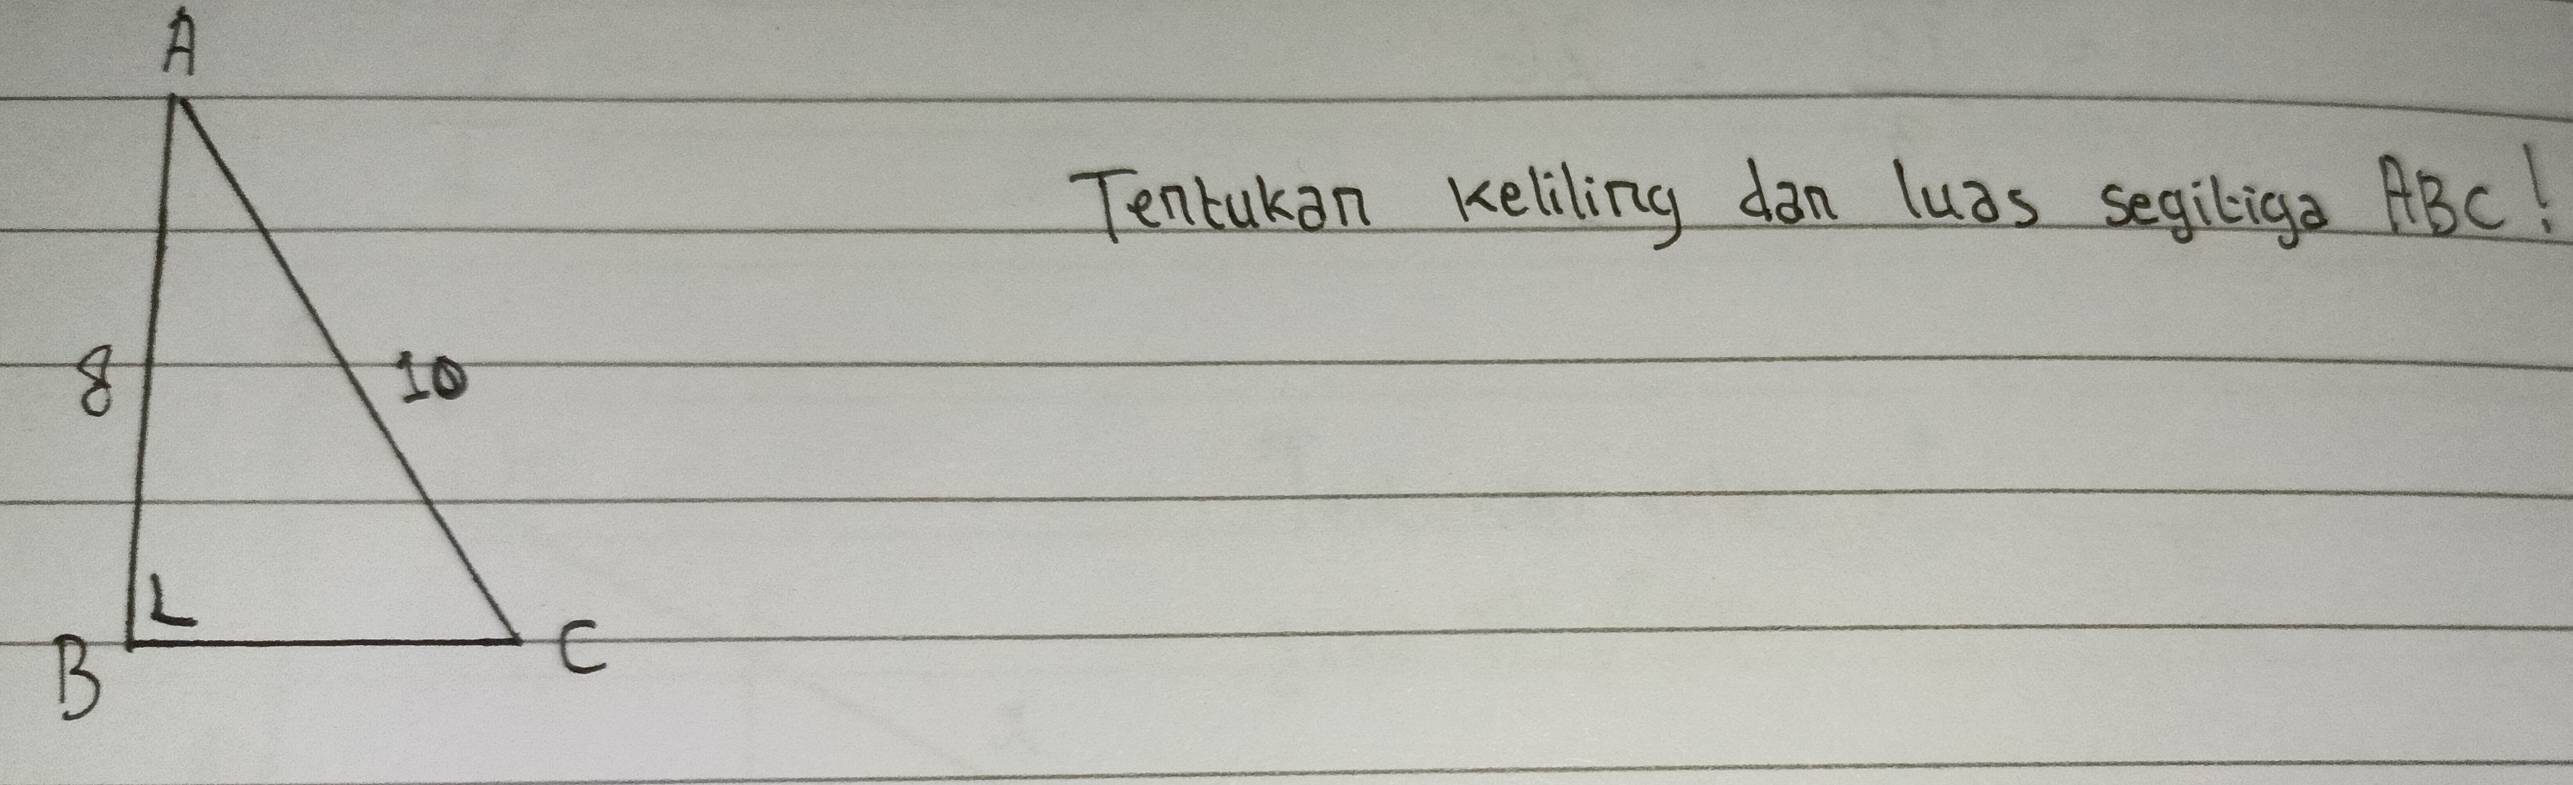 A
Tentukan keliling dan luas segitiga ABC!
8
10
B
C